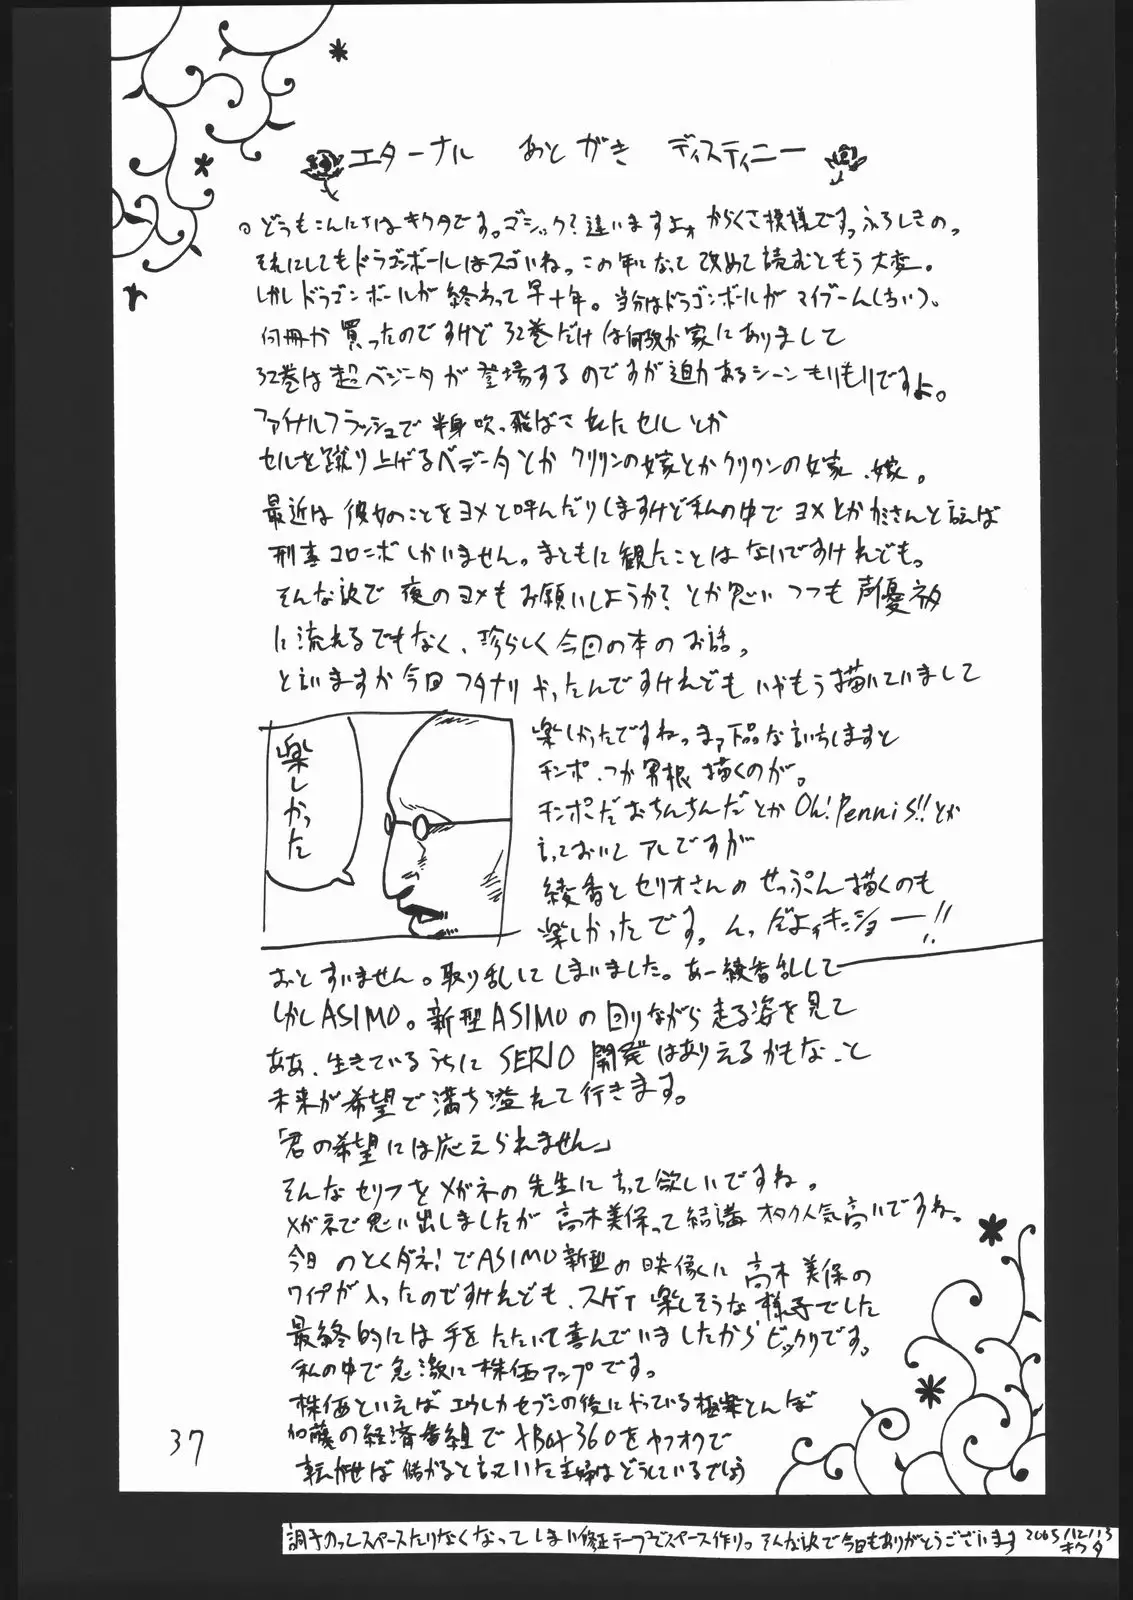 エターナル あとがき ディスティニー
。どうもこんにちはキクタです。ゴシック?違いますよォ からくさ模様です。ふろしきの。
それにしてもドラゴンボールはスゴいね。この年になって改めて読むともう大変。
しかしドラゴンボールが終わって早十年。当分はドラゴンボールがマイブーム(古い)。
何冊か買ったのですけど32巻だけは何故か家にありまして
32巻は超ベジータが登場するのですが迫力あるシーンもりもりですよ。
ファイナルフラッシュで半身吹っ飛ばされたセルとか
セルを蹴り上げるベジータとかクリリンの嫁とかクリリンの嫁、嫁。
最近は彼女のことをヨメと呼んだりしますけど私の中でヨメとかカミさんと言えば
刑事コロンボしかいません。まともに観たことはないですけれども。
そんな訳で夜のヨメもお願いしようか?とか思いつつも声優ネタ
に流れるでもなく、珍らしく今回の本のお話。
と言いますか今回フタナリやったんですけれどもいやもう描いていまして
楽しかったですね。まァ下品な言いちしますと
チンポ、つか男根描くのが。
チンポだおちんちんだとかOh!Pennis!!とか
言っておいてアレですが
綾香とセリオさんのせっぷん描くのも
楽しかったです。んっだよォキンショー!!
楽しかった
おとすいません。取り乱してしまいました。あー綾香乱して
しかしASIMO。新型ASIMOの回りながら走る姿を見て
ああ、生きているうちにSERIO開発はありえるかもなっと
未来が希望で満ち溢れて行きます。
「君の希望には応えられません」
そんなセリフをメガネの先生に言って欲しいですね。
メガネで思い出しましたが高木美保って結講オタク人気高いですね。
今日のとくダネ!でASIMO新型の映像に高木美保の
ワイプが入ったのですけれども、スゲイ楽しそうな様子でした
最終的には手をたたいて喜んでいましたからビックリです。
私の中で急激に株価アップです。
株価といえばエウレカセブンの後にやっている極楽とんぼ
加藤の経済番組でXBox360をヤフオクで
転がせば儲かると言っていた主婦はどうしているでしょう
37
調子のってスペースたりなくなってしまい修正テープでスペース作り。そんな訳で今日もありがとうございます 2005/12/13
キクタ